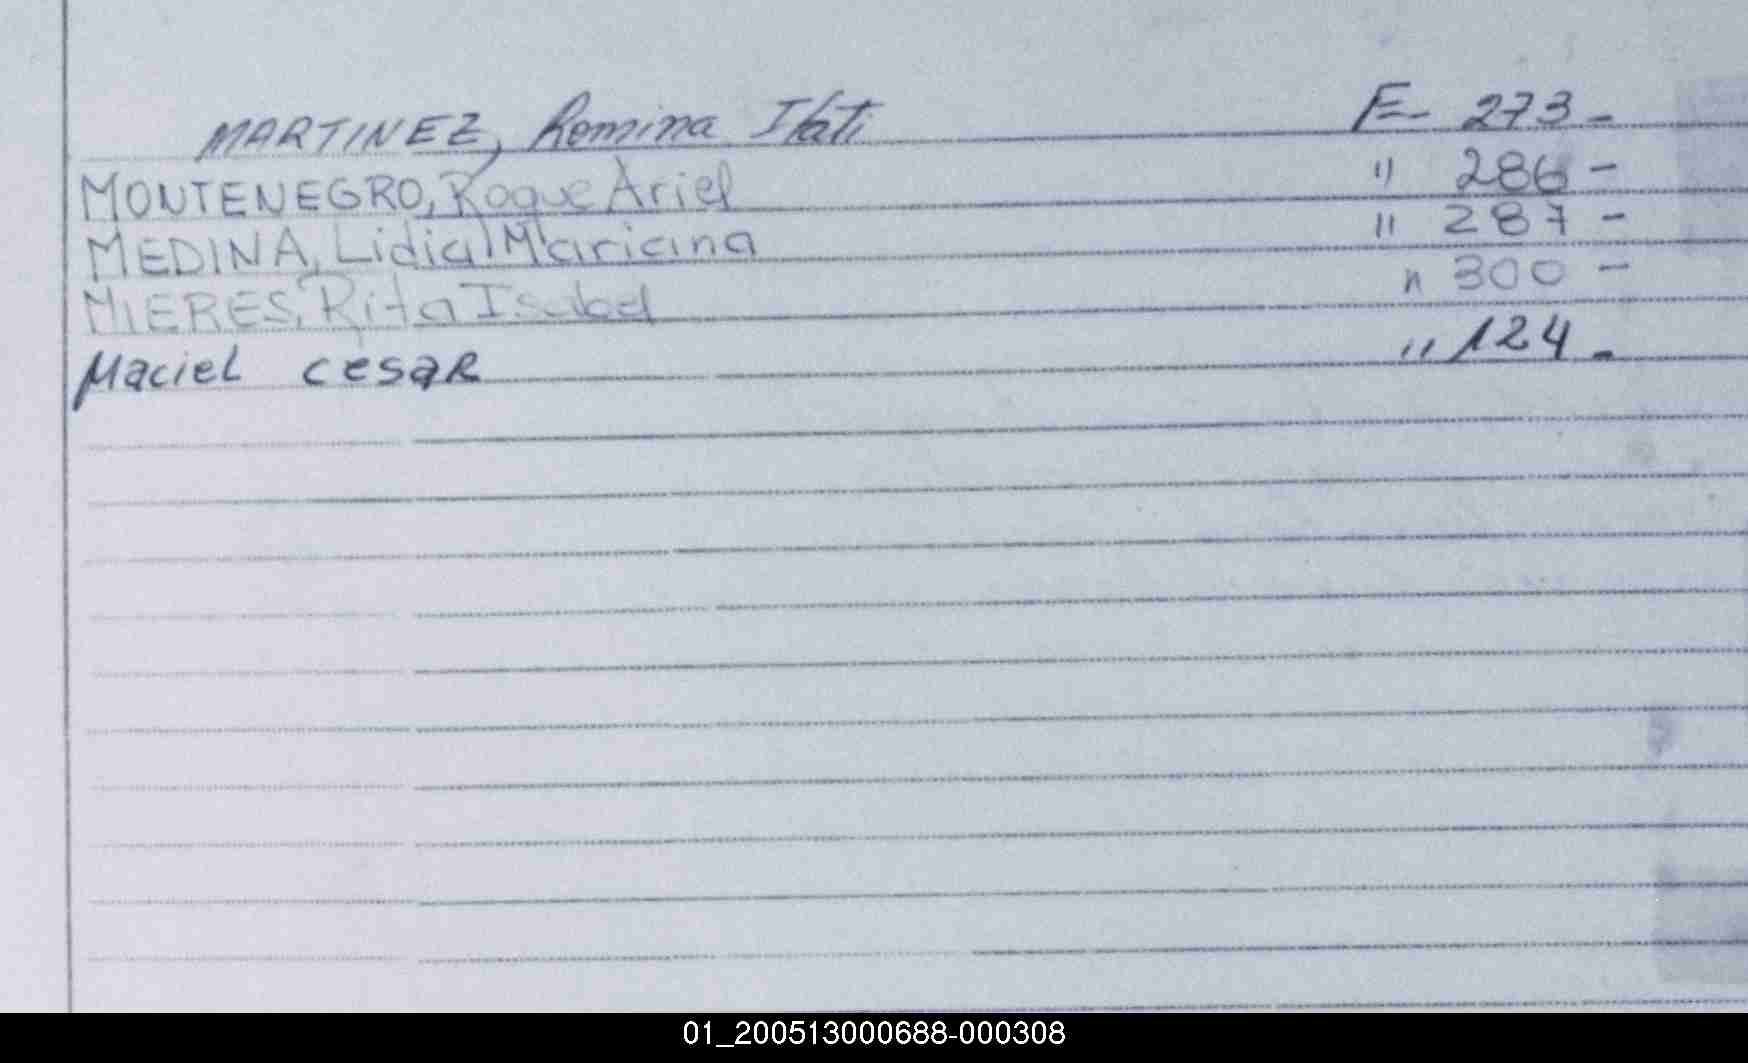 MARTINEZ, Romina Itati F- 273-
MONTENEGRO, Roque Ariel " 286-
MEDINA, Lidia Mariana " 287-
MIERES, Rita Isabel " 300-
Maciel cesar " 124-
01_200513000688-000308